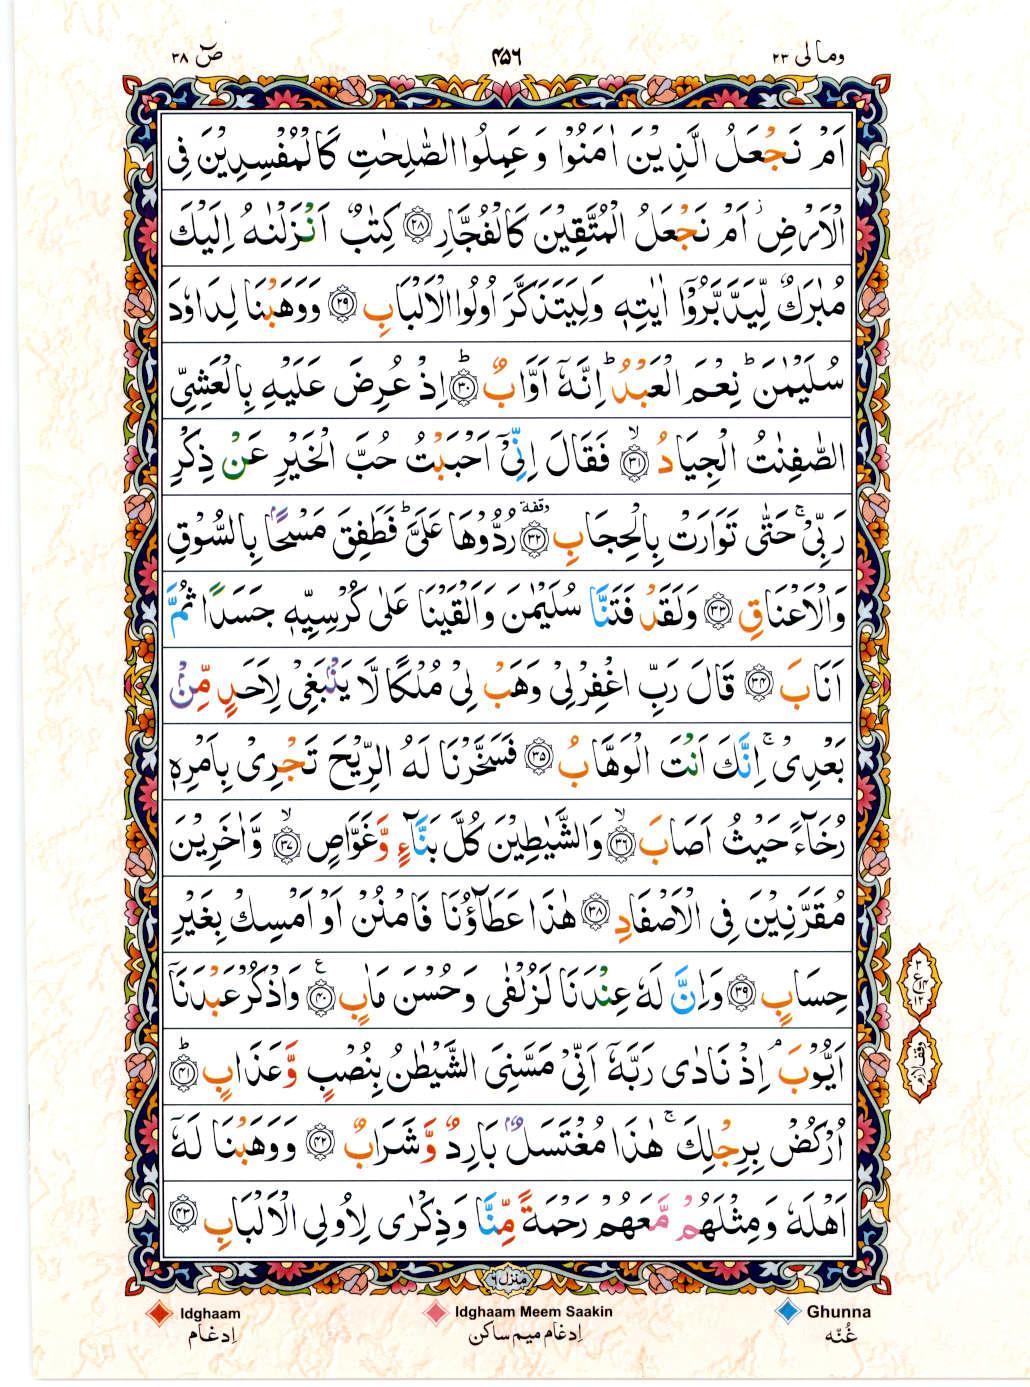 ومالی ۲۳ ۴۵۶ صٓ ۳۸
اَمْ نَجْعَلُ الَّذِیْنَ اٰمَنُوْا وَ عَمِلُوا الصّٰلِحٰتِ كَالْمُفْسِدِیْنَ فِی
الْاَرْضِ ؗ اَمْ نَجْعَلُ الْمُتَّقِیْنَ كَالْفُجَّارِ ﴿۲۸﴾ كِتٰبٌ اَنْزَلْنٰهُ اِلَیْكَ
مُبٰرَكٌ لِّیَدَّبَّرُوْۤا اٰیٰتِهٖ وَلِیَتَذَكَّرَ اُولُوا الْاَلْبَابِ ﴿۲۹﴾ وَوَهَبْنَا لِدَاوٗدَ
سُلَیْمٰنَ ؕ نِعْمَ الْعَبْدُ ؕ اِنَّهٗۤ اَوَّابٌ ﴿۳۰﴾ؕ اِذْ عُرِضَ عَلَیْهِ بِالْعَشِیِّ
الصّٰفِنٰتُ الْجِیَادُ ﴿۳۱﴾ۙ فَقَالَ اِنِّیْۤ اَحْبَبْتُ حُبَّ الْخَیْرِ عَنْ ذِكْرِ
رَبِّیْ ۚ حَتّٰی تَوَارَتْ بِالْحِجَابِ ﴿۳۲﴾ وقفة رُدُّوْهَا عَلَیَّ ؕ فَطَفِقَ مَسْحًۢا بِالسُّوْقِ
وَالْاَعْنَاقِ ﴿۳۳﴾ وَلَقَدْ فَتَنَّا سُلَیْمٰنَ وَاَلْقَیْنَا عَلٰی كُرْسِیِّهٖ جَسَدًا ثُمَّ
اَنَابَ ﴿۳۴﴾ قَالَ رَبِّ اغْفِرْ لِیْ وَهَبْ لِیْ مُلْكًا لَّا یَنْۢبَغِیْ لِاَحَدٍ مِّنْۢ
بَعْدِیْ ۚ اِنَّكَ اَنْتَ الْوَهَّابُ ﴿۳۵﴾ فَسَخَّرْنَا لَهُ الرِّیْحَ تَجْرِیْ بِاَمْرِهٖ
رُخَآءً حَیْثُ اَصَابَ ﴿۳۶﴾ۙ وَالشَّیٰطِیْنَ كُلَّ بَنَّآءٍ وَّغَوَّاصٍ ﴿۳۷﴾ۙ وَّاٰخَرِیْنَ
مُقَرَّنِیْنَ فِی الْاَصْفَادِ ﴿۳۸﴾ هٰذَا عَطَآؤُنَا فَامْنُنْ اَوْ اَمْسِكْ بِغَیْرِ
حِسَابٍ ﴿۳۹﴾ وَاِنَّ لَهٗ عِنْدَنَا لَزُلْفٰی وَحُسْنَ مَاٰبٍ ﴿۴۰﴾ ع وَاذْكُرْ عَبْدَنَاۤ
اَیُّوْبَ ۘ اِذْ نَادٰی رَبَّهٗۤ اَنِّیْ مَسَّنِیَ الشَّیْطٰنُ بِنُصْبٍ وَّعَذَابٍ ﴿۴۱﴾ؕ
اُرْكُضْ بِرِجْلِكَ ۚ هٰذَا مُغْتَسَلٌۢ بَارِدٌ وَّشَرَابٌ ﴿۴۲﴾ وَوَهَبْنَا لَهٗۤ
اَهْلَهٗ وَمِثْلَهُمْ مَّعَهُمْ رَحْمَةً مِّنَّا وَذِكْرٰی لِاُولِی الْاَلْبَابِ ﴿۴۳﴾
۳ ع ۱۴ ۱۲
وقف لازم
منزل ۶
Ghunna Idghaam Meem Saakin Idghaam
غُنّه اِدغام میم ساكن اِدغام